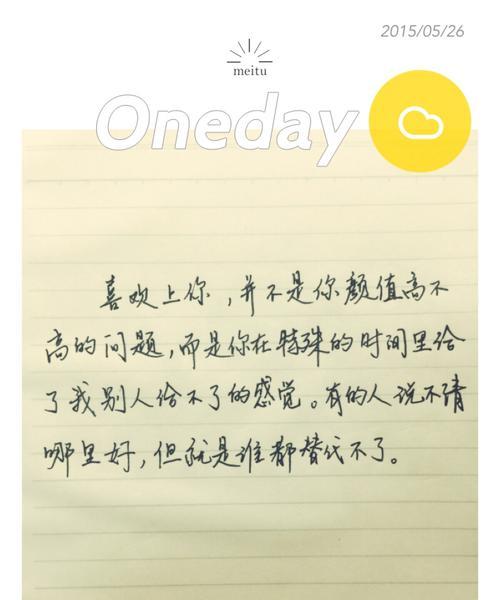 2015/05/26
meitu
Oneday
喜欢上你，并不是你颜值高不
高的问题，而是你在特殊的时间里给
了我别人给不了的感觉。有的人说不清
哪里好，但就是谁都替代不了。